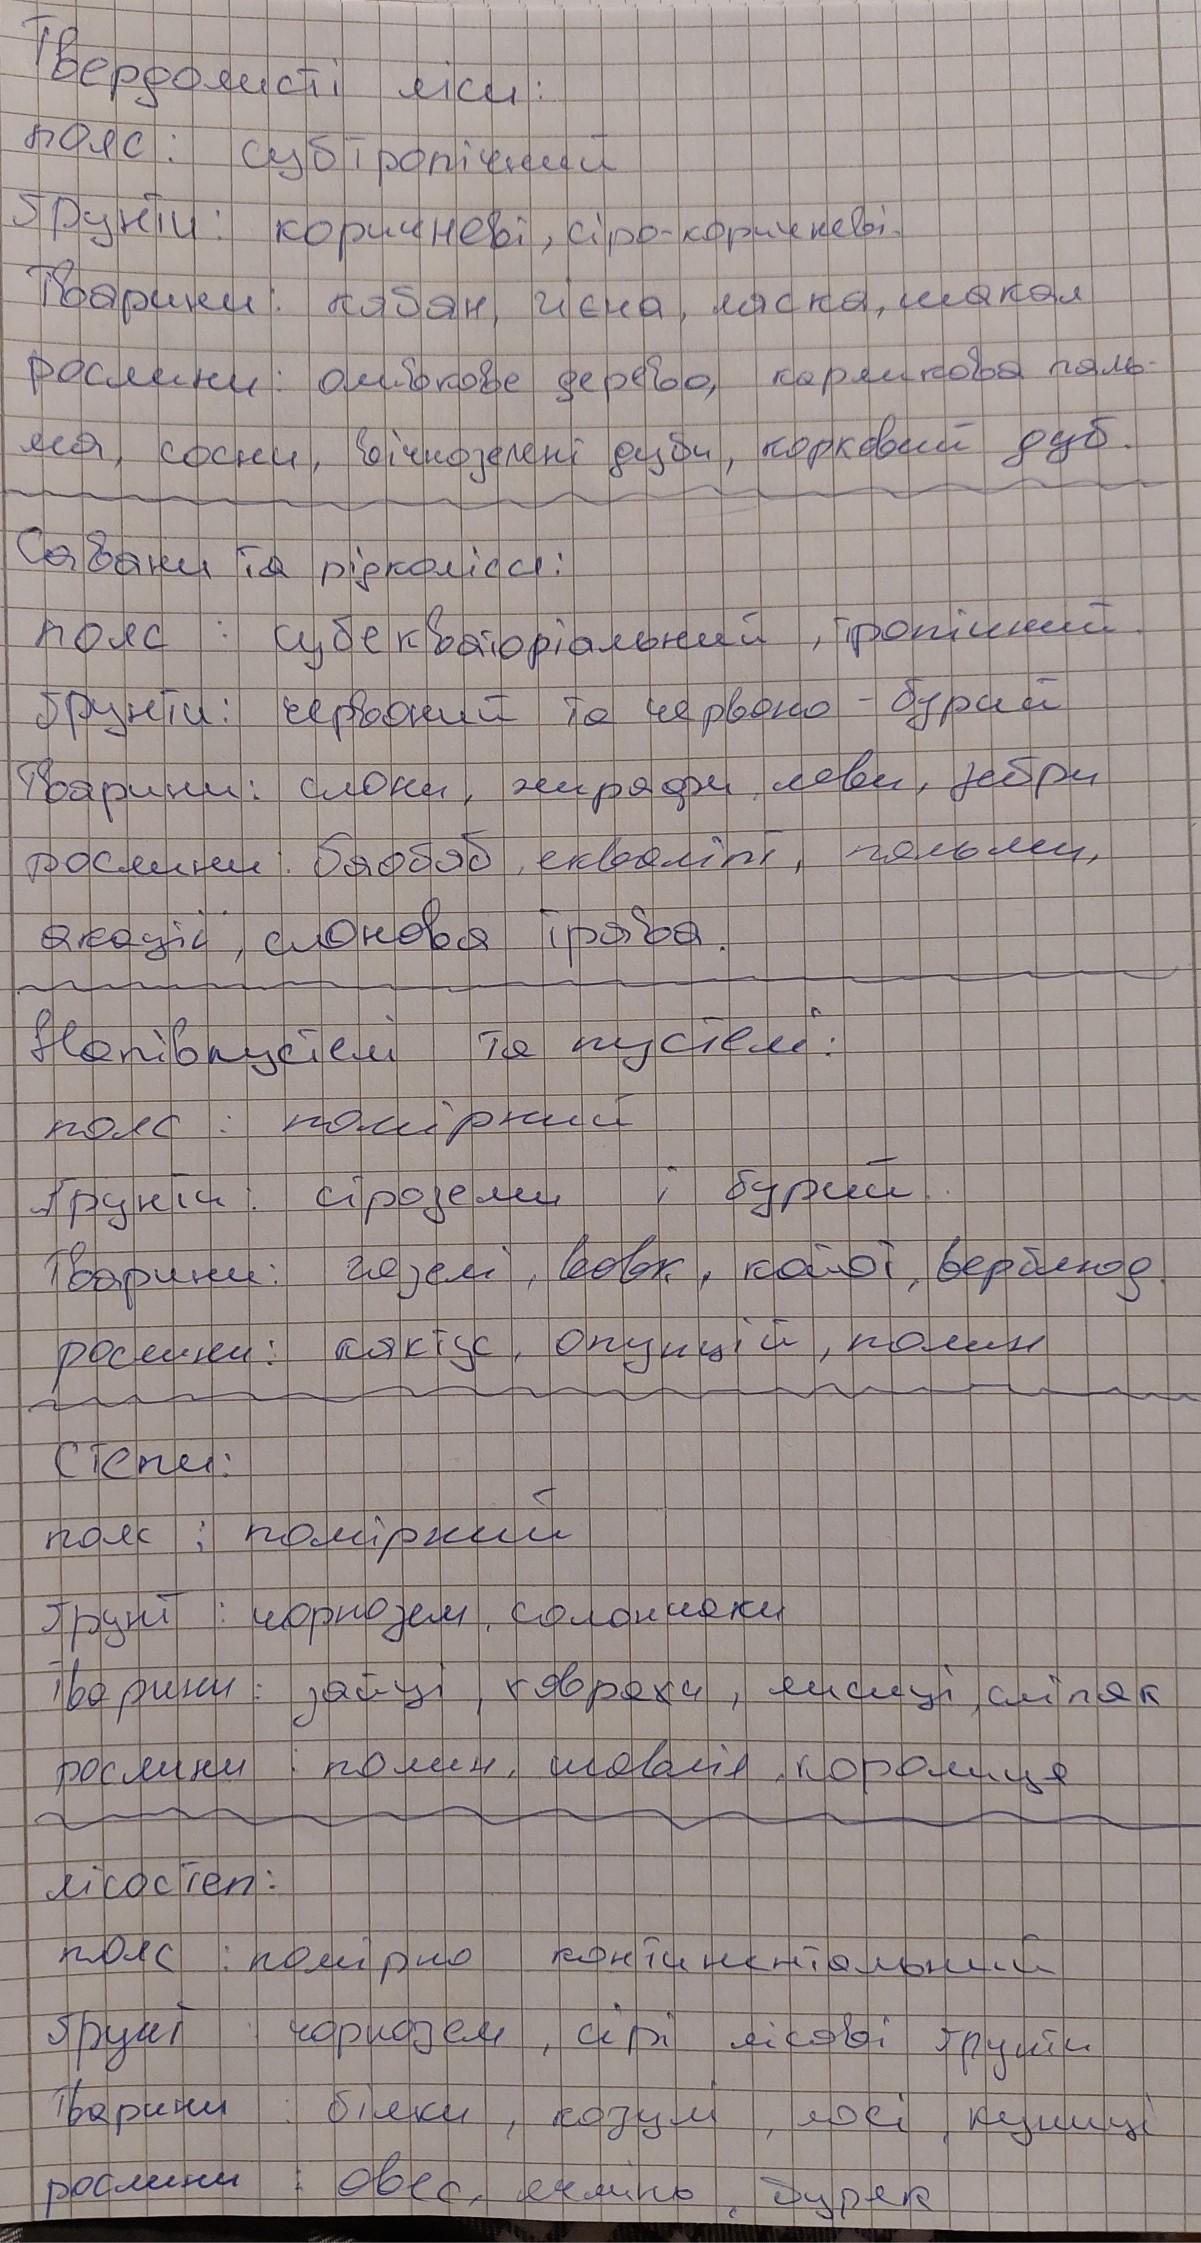 Твердолисті ліси:
пояс: субтропічний
ґрунти: коричневі, сіро-коричневі.
Тварини: кабан, гієна, ласка, шакал
рослини: оливкове дерево, карликова паль-
ма, сосни, вічнозелені дуби, корковий дуб.
Савани та рідколісся:
пояс: субекваторіальний, тропічний.
ґрунти: червоний та червоно-бурий
Тварини: слони, жирафи, леви, зебри
рослини: баобаб, екваліпт, пальми,
акації, слонова трава.
Напівпустелі та пустелі:
пояс: помірний
ґрунти: сіроземи і бурий.
Тварини: газелі, вовк, койот, верблюд.
рослини: кактус, опунцій, полин
Степи:
пояс: помірний
ґрунт: чорнозем, солончаки
Тварини: зайці, ховрахи, лисиці, сліпак
рослини: полин, шавлія, королиця
лісостеп:
пояс: помірно континентальний
ґрунт чорнозем, сірі лісові ґрунти
Тварини: білки, козулі, лосі, куниці
рослини: овес, ячмінь, буряк